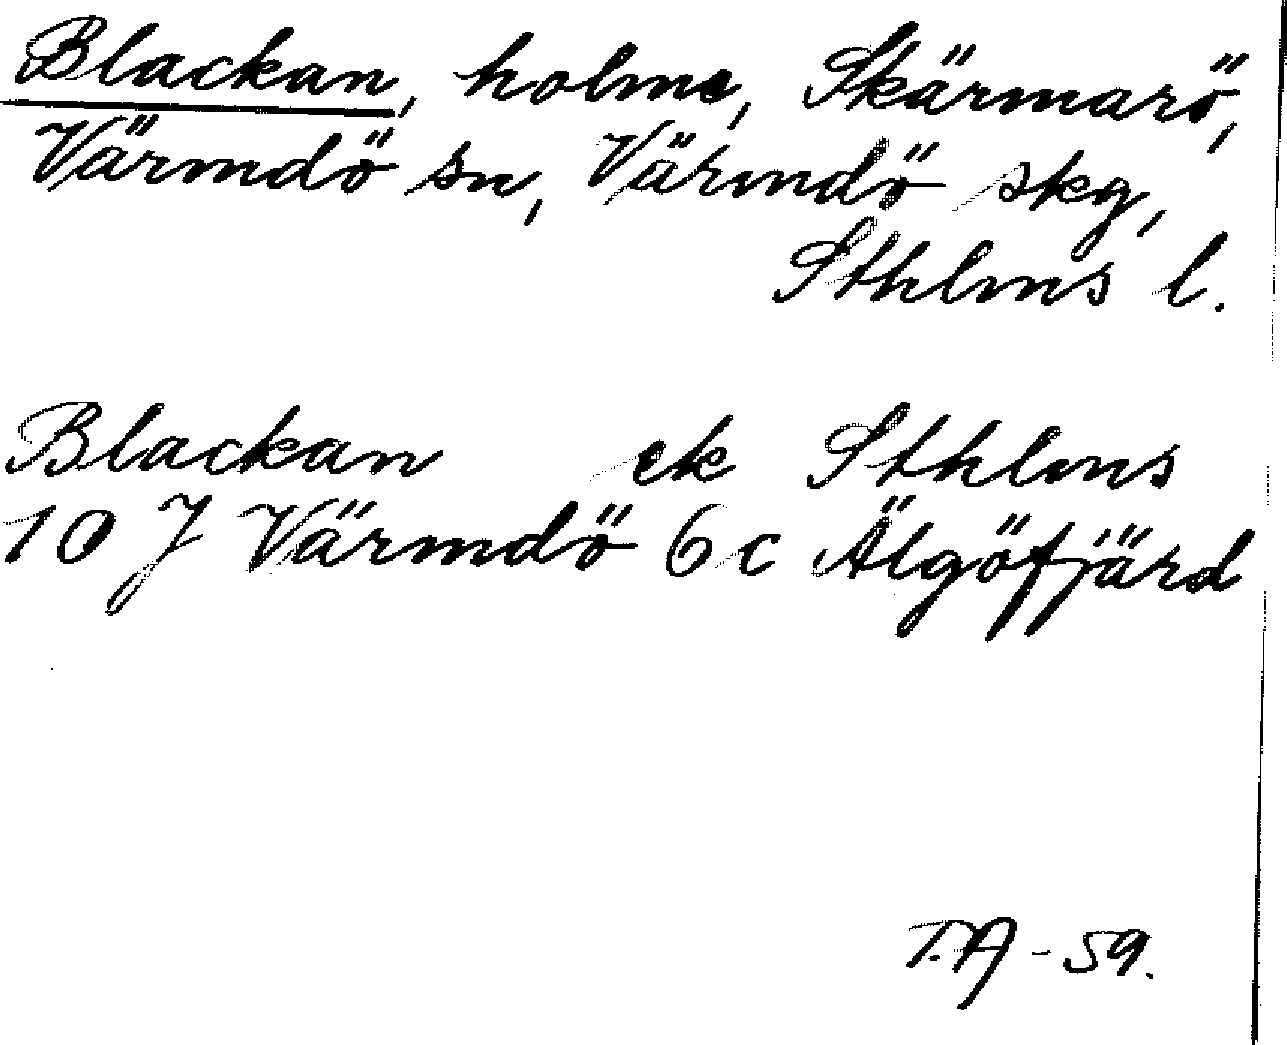 Blackan, holme, Skärmarö,
Värmdö sn, Värmdö skg,
Sthlms l.
Blackan ek Sthlms
10 J Värmdö 6c Älgöfjärd
T.A - 59.